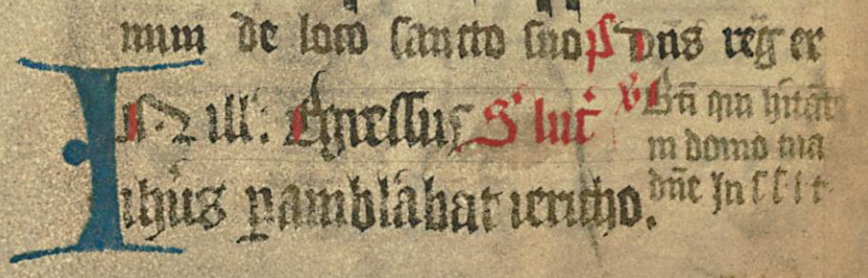 num de loco sancto suo ps Dns reg er
IN ill': Egressus S' luc v Bti qui hitāt
in domo tua
ihus pamblabat iericho. dne